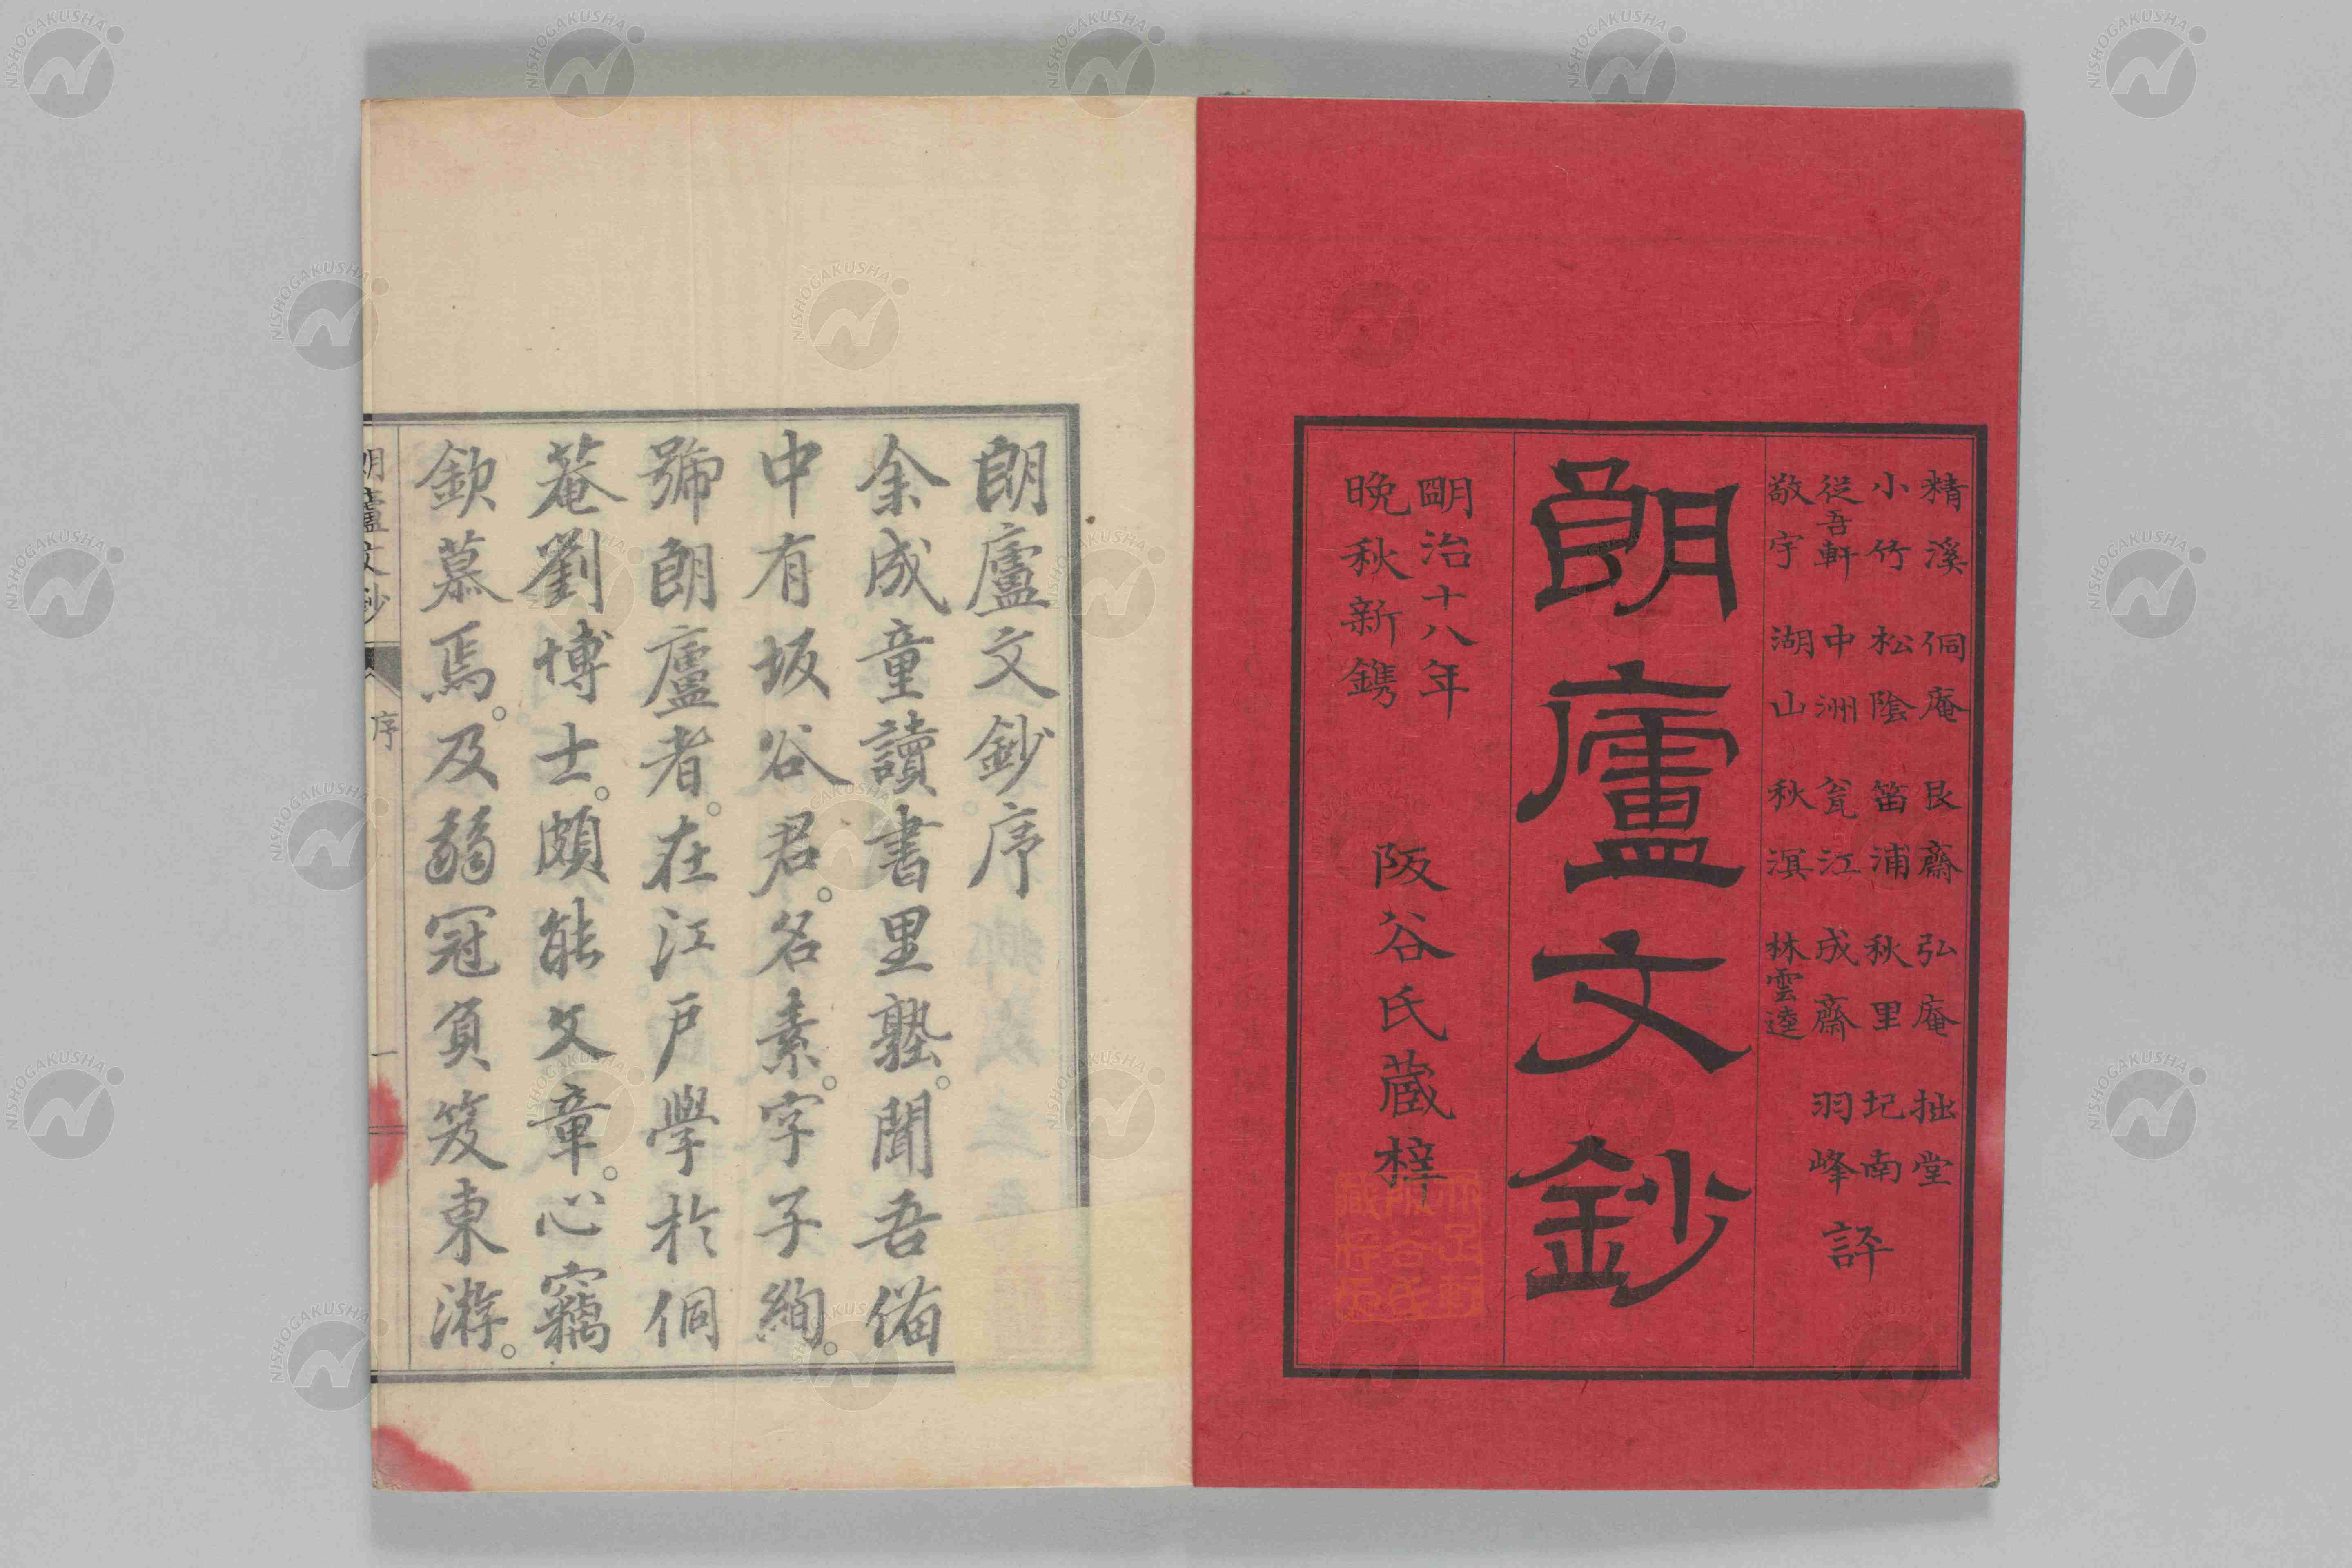 精溪 侗庵 艮齋 弘庵 拙堂
小竹 松陰 笛浦 秋里 圮南
従吾軒 中洲 瓮江 成齋 羽峰 評
敬宇 湖山 秋湨 林雲逵
朗廬文鈔
明治十八年
晩秋新鐫
阪谷氏蔵梓
朗廬文鈔序
余成童讀書里塾。聞吾備
中有坂谷君。名素。字子絢。
號朗廬者。在江戸學於侗
菴劉博士。頗能文章。心竊
欽慕焉。及弱冠負笈東游。
朗廬文鈔 序 一
NISHOGAKUSHA